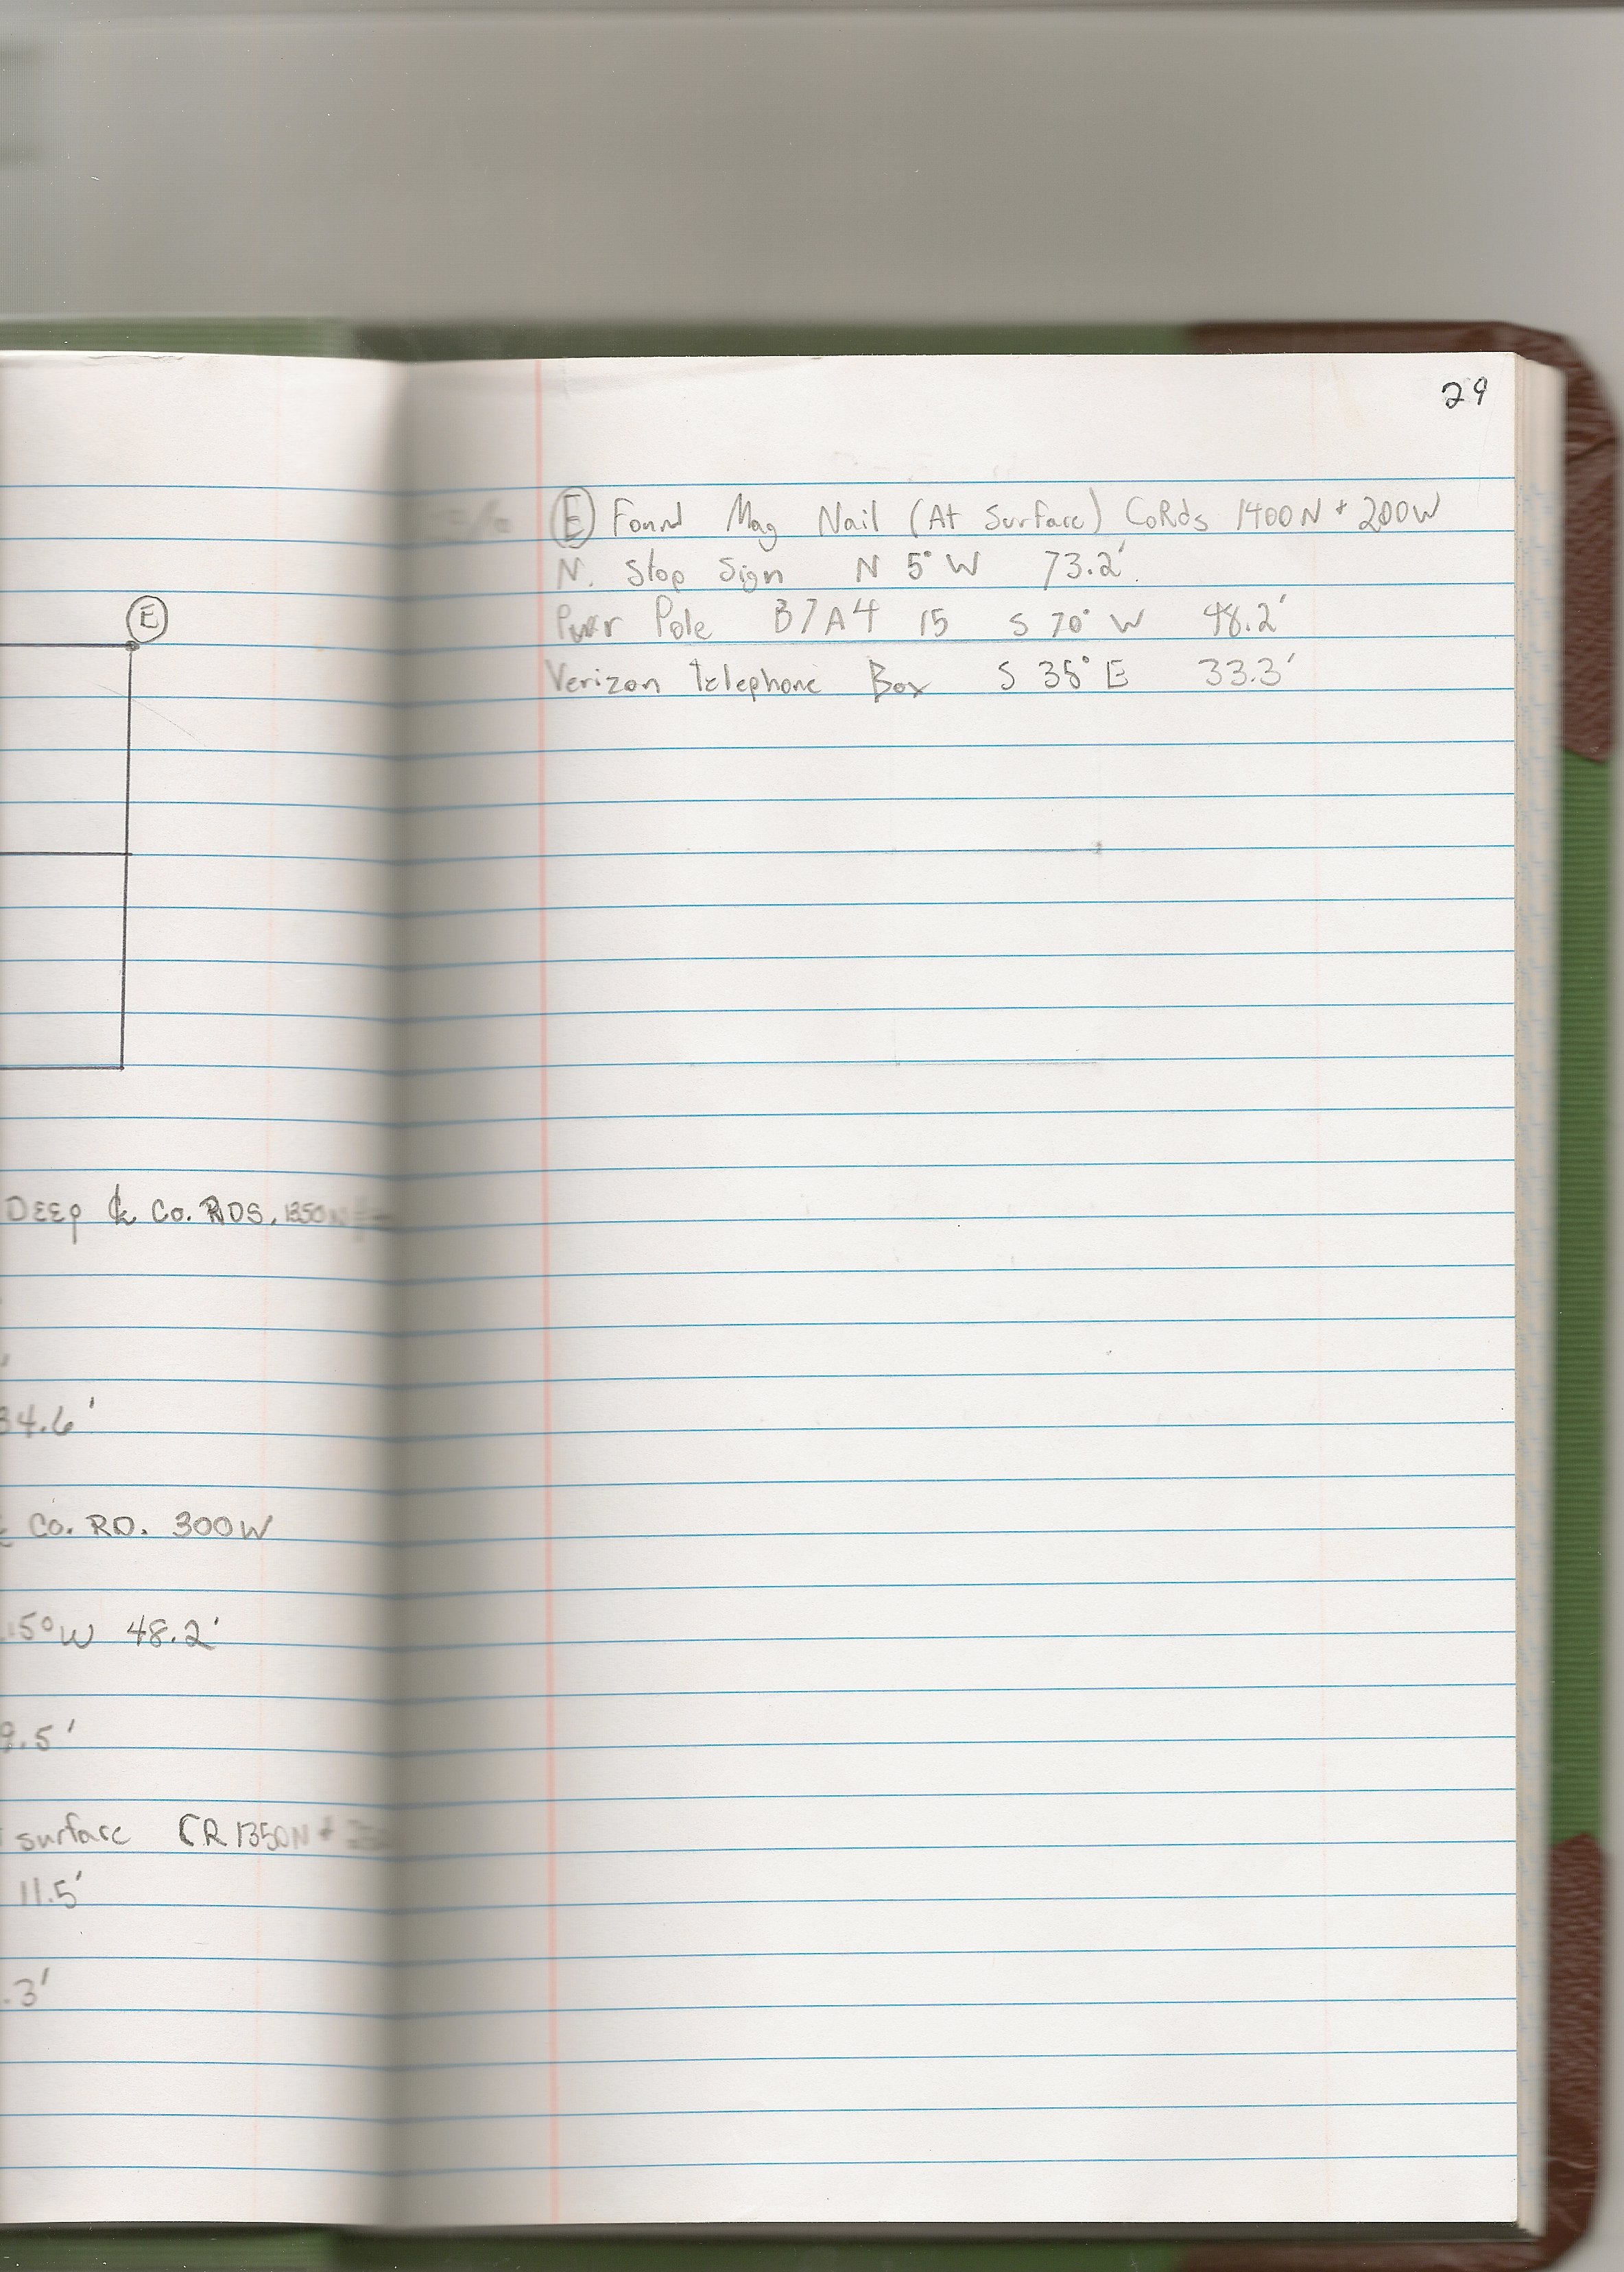 29
E Found Mag Nail (At Surface) CoRds 1400N + 200W
N. Stop Sign N 5° W 73.2'
Pwr Pole B7A4 15 S 70° W 48.2'
Verizon telephone Box S 35° E 33.3'
E
DEEP & Co. RDS. 1350N
34.6'
Co. RD. 300W
15° W 48.2'
9.5'
surface CR 1350N +
11.5'
.3'